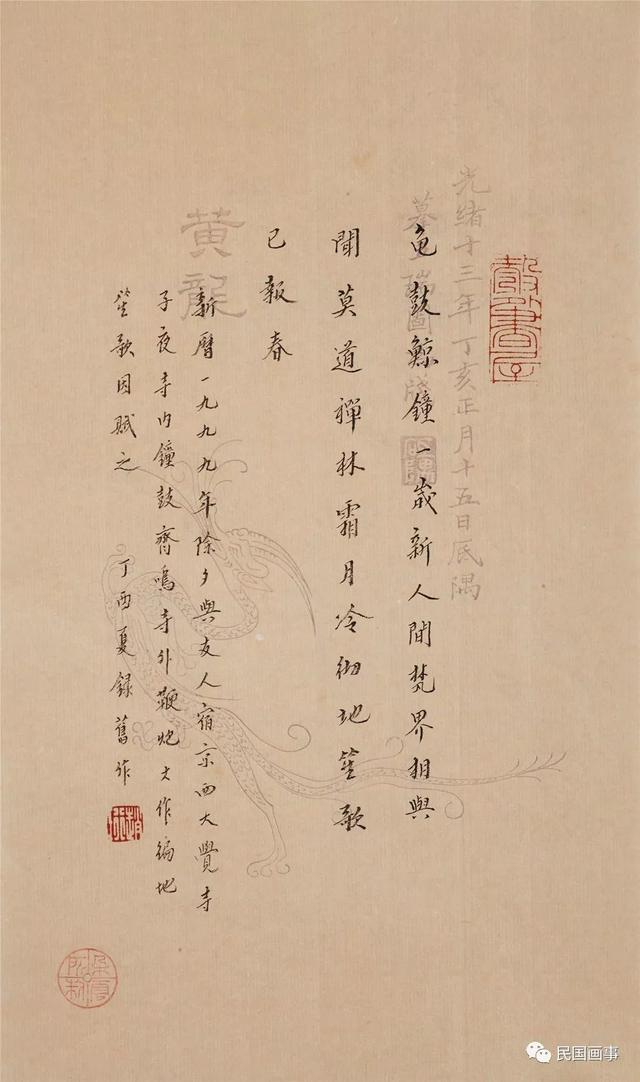 光緒十三年丁亥正月十五日
黿鼓鯨鐘一歲新人間梵界相與
聞莫道禪林霜月冷徧地笙歌
已報春
黃龍
新曆一九九九年除夕與友人宿京西大覺寺
子夜寺內鐘鼓齊鳴寺外鞭炮大作徧地
笙歌因賦之
丁酉夏錄舊作
民国画事